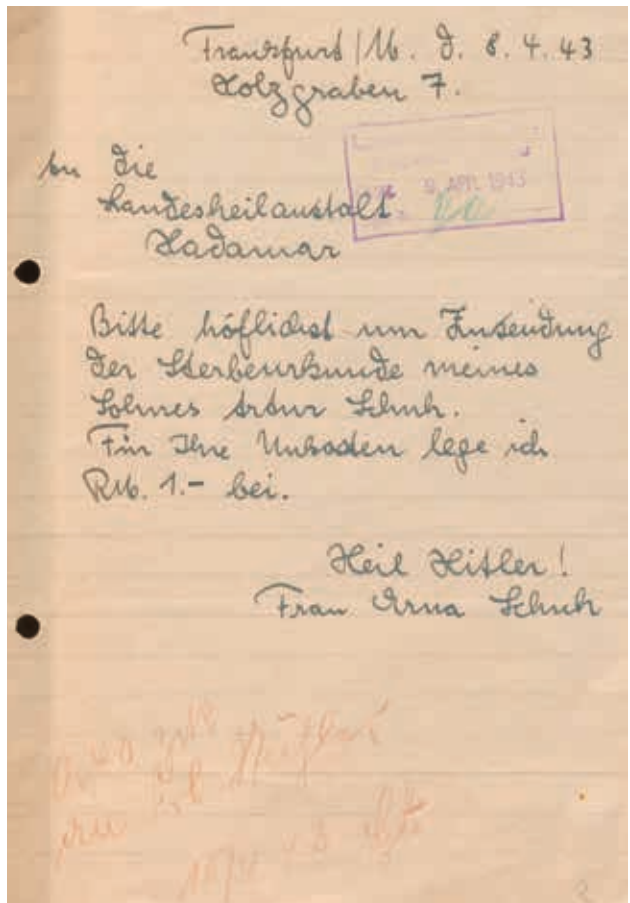 Frankfurt/M. d. 8.4.43
Holzgraben 7.
An die
Landesheilanstalt
Hadamar
9. APR. 1943
Bitte höflichst um Zusendung
der Sterbeurkunde meines
Sohnes Artur Schuh.
Für Ihre Unkosten lege ich
RM. 1.- bei.
Heil Hitler!
Frau Erna Schuh